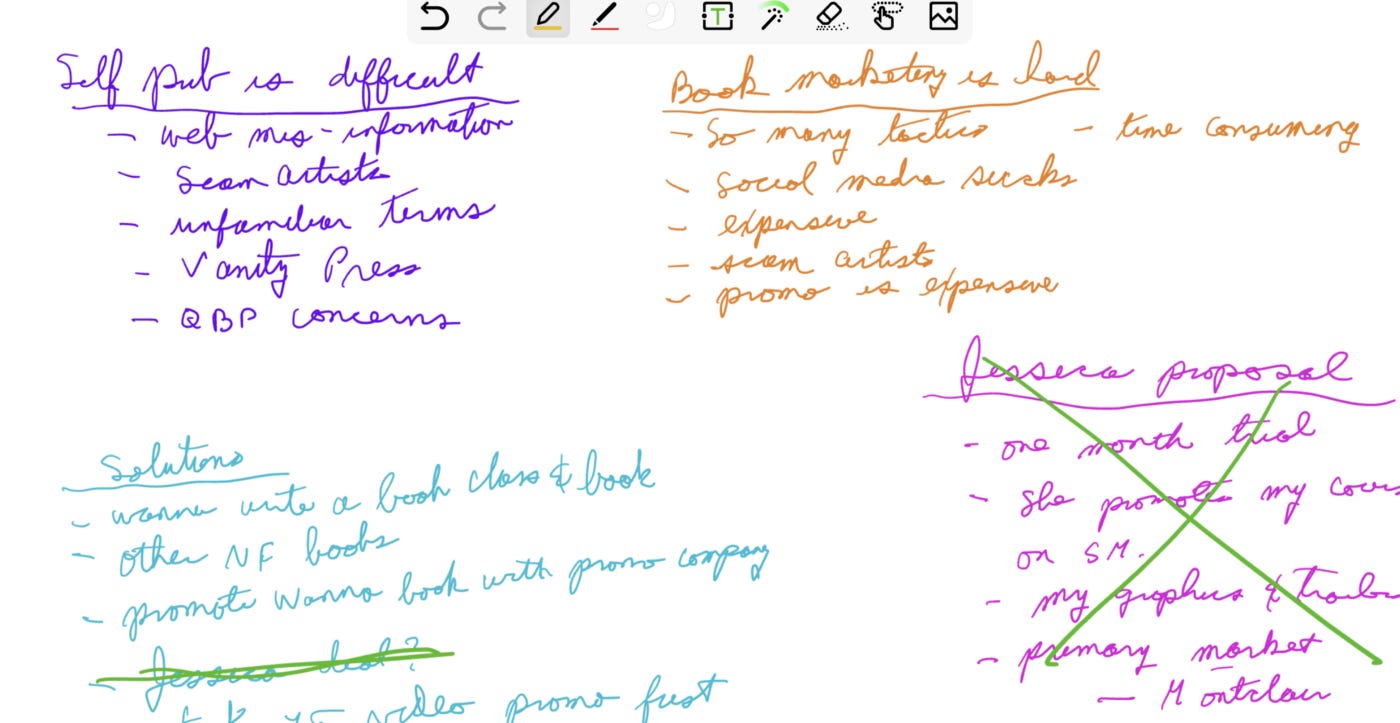 Self pub is difficult
- web mis-information
- Scam artists
- unfamiliar terms
- Vanity Press
- QBP concerns
Book marketing is hard
- So many tactics - time consuming
- Social media sucks
- expensive
- scam artists
- promo is expensive
Jessica proposal
- one month trial
- she promotes my
on SM.
- my graphics &
- primary market
- Montclair
Solutions
- wanna write a book class & book
- other NF books
- promote Wanna book with promo company
- Jessica deal?
video promo first